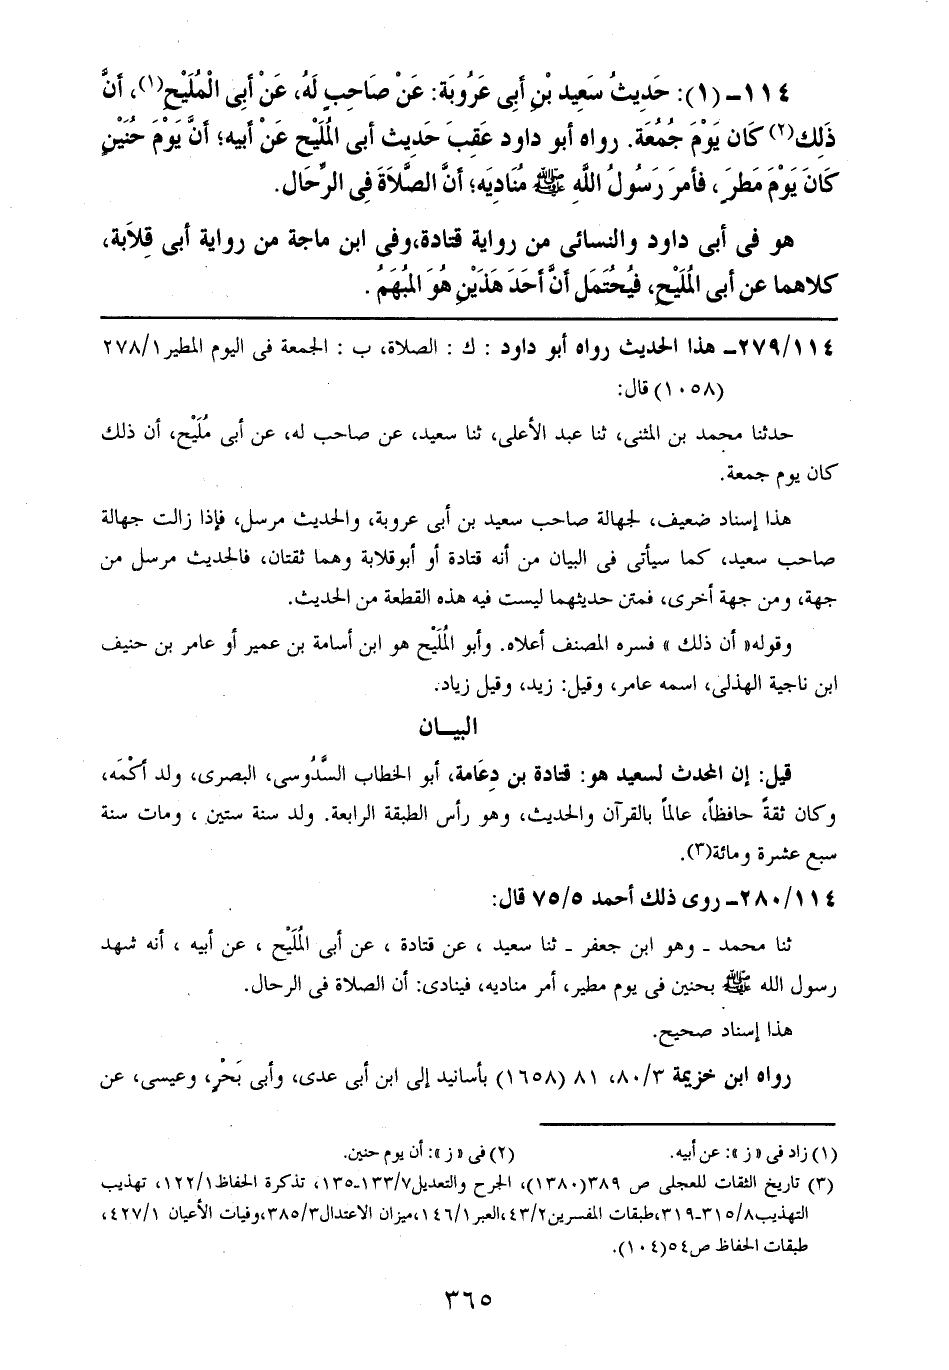 ١١٤ـ (١): حَدِيثُ سَعِيدِ بْنِ أَبِى عَرُوبَة: عَنْ صَاحِبٍ لَهُ، عَنْ أَبِى الْمُلَيْح(١)، أنَّ
ذَلِكَ(٢) كَان يَوْمَ جُمُعَة. رواه أبو داود عَقِبَ حَدِيث أبى المُلَيْح عَنْ أبيه؛ أنَّ يَوْمَ حُنَيْنٍ
كَانَ يَوْمَ مَطرَ ، فأمرَ رَسُولُ اللَّهِ ﷺ مُنَاديَه؛ أنَّ الصَّلاَةَ فِى الرِّحَال.
هو فى أبى داود والنسائى من رواية قتادة،وفى ابن ماجة من رواية أبى قِلاَبة،
كلاهما عن أبى المُلَيْحِ، فيُحْتَمَل أنَّ أحَدَ هَذَيْنِ هُوَ المُبْهَمُ .
٢٧٩/١١٤ـ هذا الحديث رواه أبو داود : ك : الصلاة، ب : الجمعة فى اليوم المطير٢٧٨/١
(١٠٥٨) قال:
حدثنا محمد بن المثنى، ثنا عبد الأعلى، ثنا سعيد، عن صاحب له، عن أبى مُلَيْح، أن ذلك
كان يوم جمعة.
هذا إسناد ضعيف، لجهالة صاحب سعيد بن أبى عروبة، والحديث مرسل، فإذا زالت جهالة
صاحب سعيد، كما سيأتى فى البيان من أنه قتادة أو أبوقلابة وهما ثقتان، فالحديث مرسل من
جهة، ومن جهة أخرى، فمتن حديثهما ليست فيه هذه القطعة من الحديث.
وقوله« أن ذلك » فسره المصنف أعلاه. وأبو المُلَيْح هو ابن أسامة بن عمير أو عامر بن حنيف
ابن ناجية الهذلى، اسمه عامر، وقيل: زيد، وقيل زياد.
البيـان
قيل: إن المحدث لسعيد هو: قتادة بن دِعَامة، أبو الخطاب السَّدُوسى، البصرى، ولد أَكْمَه،
وكان ثقةً حافظاً، عالماً بالقرآن والحديث، وهو رأس الطبقة الرابعة. ولد سنة ستين ، ومات سنة
سبع عشرة ومائة(٣).
٢٨٠/١١٤ـ روى ذلك أحمد ٧٥/٥ قال:
ثنا محمد ـ وهو ابن جعفر ـ ثنا سعيد ، عن قتادة ، عن أبى المُلَيْح ، عن أبيه ، أنه شهد
رسول الله ﷺ بحنين فى يوم مطير، أمر مناديه، فينادى: أن الصلاة فى الرحال.
هذا إسناد صحيح.
رواه ابن خزيمة ٨٠/٣، ٨١ (١٦٥٨) بأسانيد إلى ابن أبى عدى، وأبى بَحْرٍ، وعيسى، عن
(١) زاد فى « ز »: عن أبيه. (٢) فى « ز »: أن يوم حنين.
(٣) تاريخ الثقات للعجلى ص ٣٨٩(١٣٨٠)، الجرح والتعديل١٣٣/٧ـ١٣٥، تذكرة الحفاظ١٢٢/١، تهذيب
التهذيب٣١٥/٨ـ٣١٩،طبقات المفسرين٤٣/٢،العبر١٤٦/١،ميزان الاعتدال٣٨٥/٣،وفيات الأعيان ٤٢٧/١،
طبقات الحفاظ ص٥٤(١٠٤).
٣٦٥